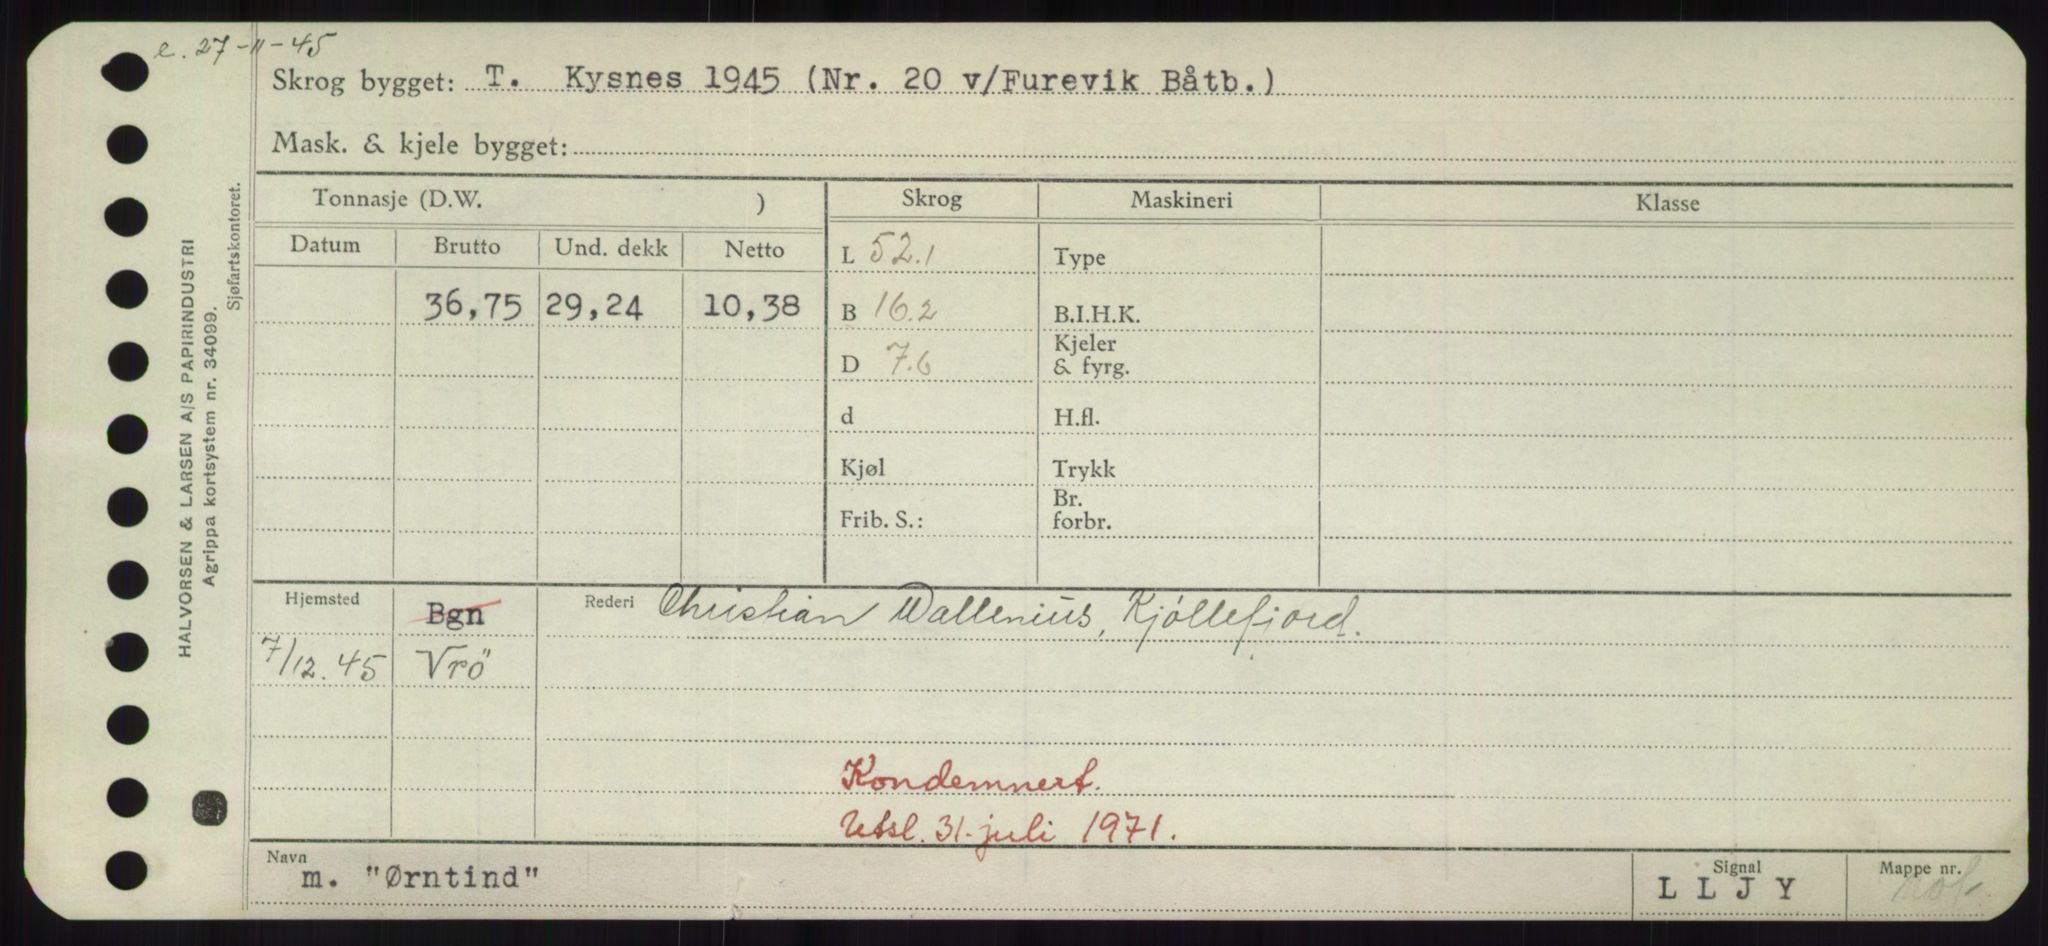 e. 27-11-45
Skrog bygget: T. Kysnes 1945 (Nr. 20 v/Furevik Båtb.)
Mask. & kjele bygget:
Tonnasje (D.W. ) Skrog Maskineri Klasse
Datum Brutto Und. dekk Netto
L 52.1 Type
36,75 29,24 10,38 B 16.2 B.I.H.K.
D 7.6 Kjeler & fyrg.
d H.fl.
Kjøl Trykk
Frib. S.: Br. forbr.
Hjemsted Bgn Rederi Christian Wallenius, Kjøllefjord.
7/12.45 Vrö
Kondemnert.
Utsl. 31. juli 1971.
Navn m. "Ørntind" Signal L L J Y Mappe nr.
HALVORSEN & LARSEN A/S PAPIRINDUSTRI
Agrippa kortsystem nr. 34099.
Sjøfartskontoret.